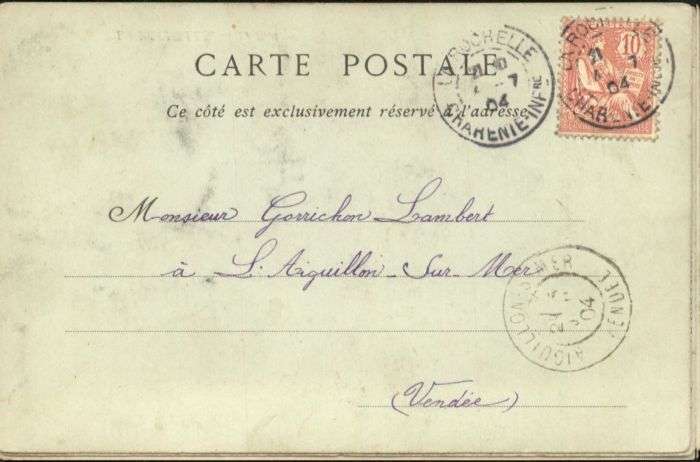 CARTE POSTALE
Ce côté est exclusivement réservé à l'adresse
LA ROCHELLE
04
CHARENTE INFRE
10
LA ROCHELLE
04
CHARENTE
Monsieur Gorrichon Lambert
à L'Aiguillon-Sur-Mer
(Vendée)
AIGUILLON S MER
04
VENDÉE